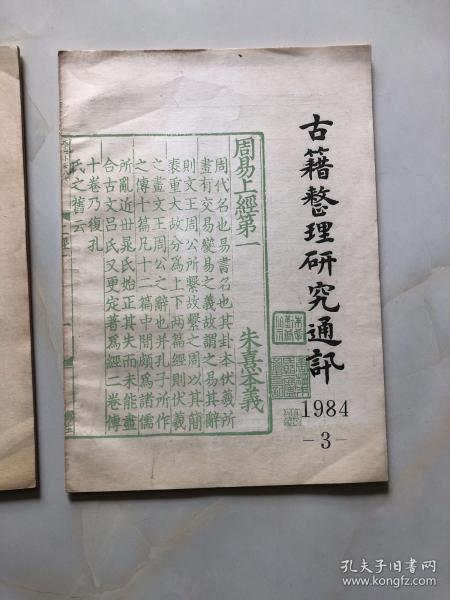 古籍整理研究通訊
1984
-3-
周易上經第一
朱熹本義
周代名也易書名也其卦本伏羲所
畫有交易變易之義故謂之易其辭
則文王周公所繫故繫之周以其簡
袠重大故分爲上下兩篇經則伏羲
之畫文王周公之辭也并孔子所作
之傳十篇凡十二篇中間頗爲諸儒
所亂近世晁氏始正其失而未能盡
合古文吕氏又更定著爲經二卷傳
十卷乃復孔
氏之舊云
孔夫子旧书网
www.kongfz.com